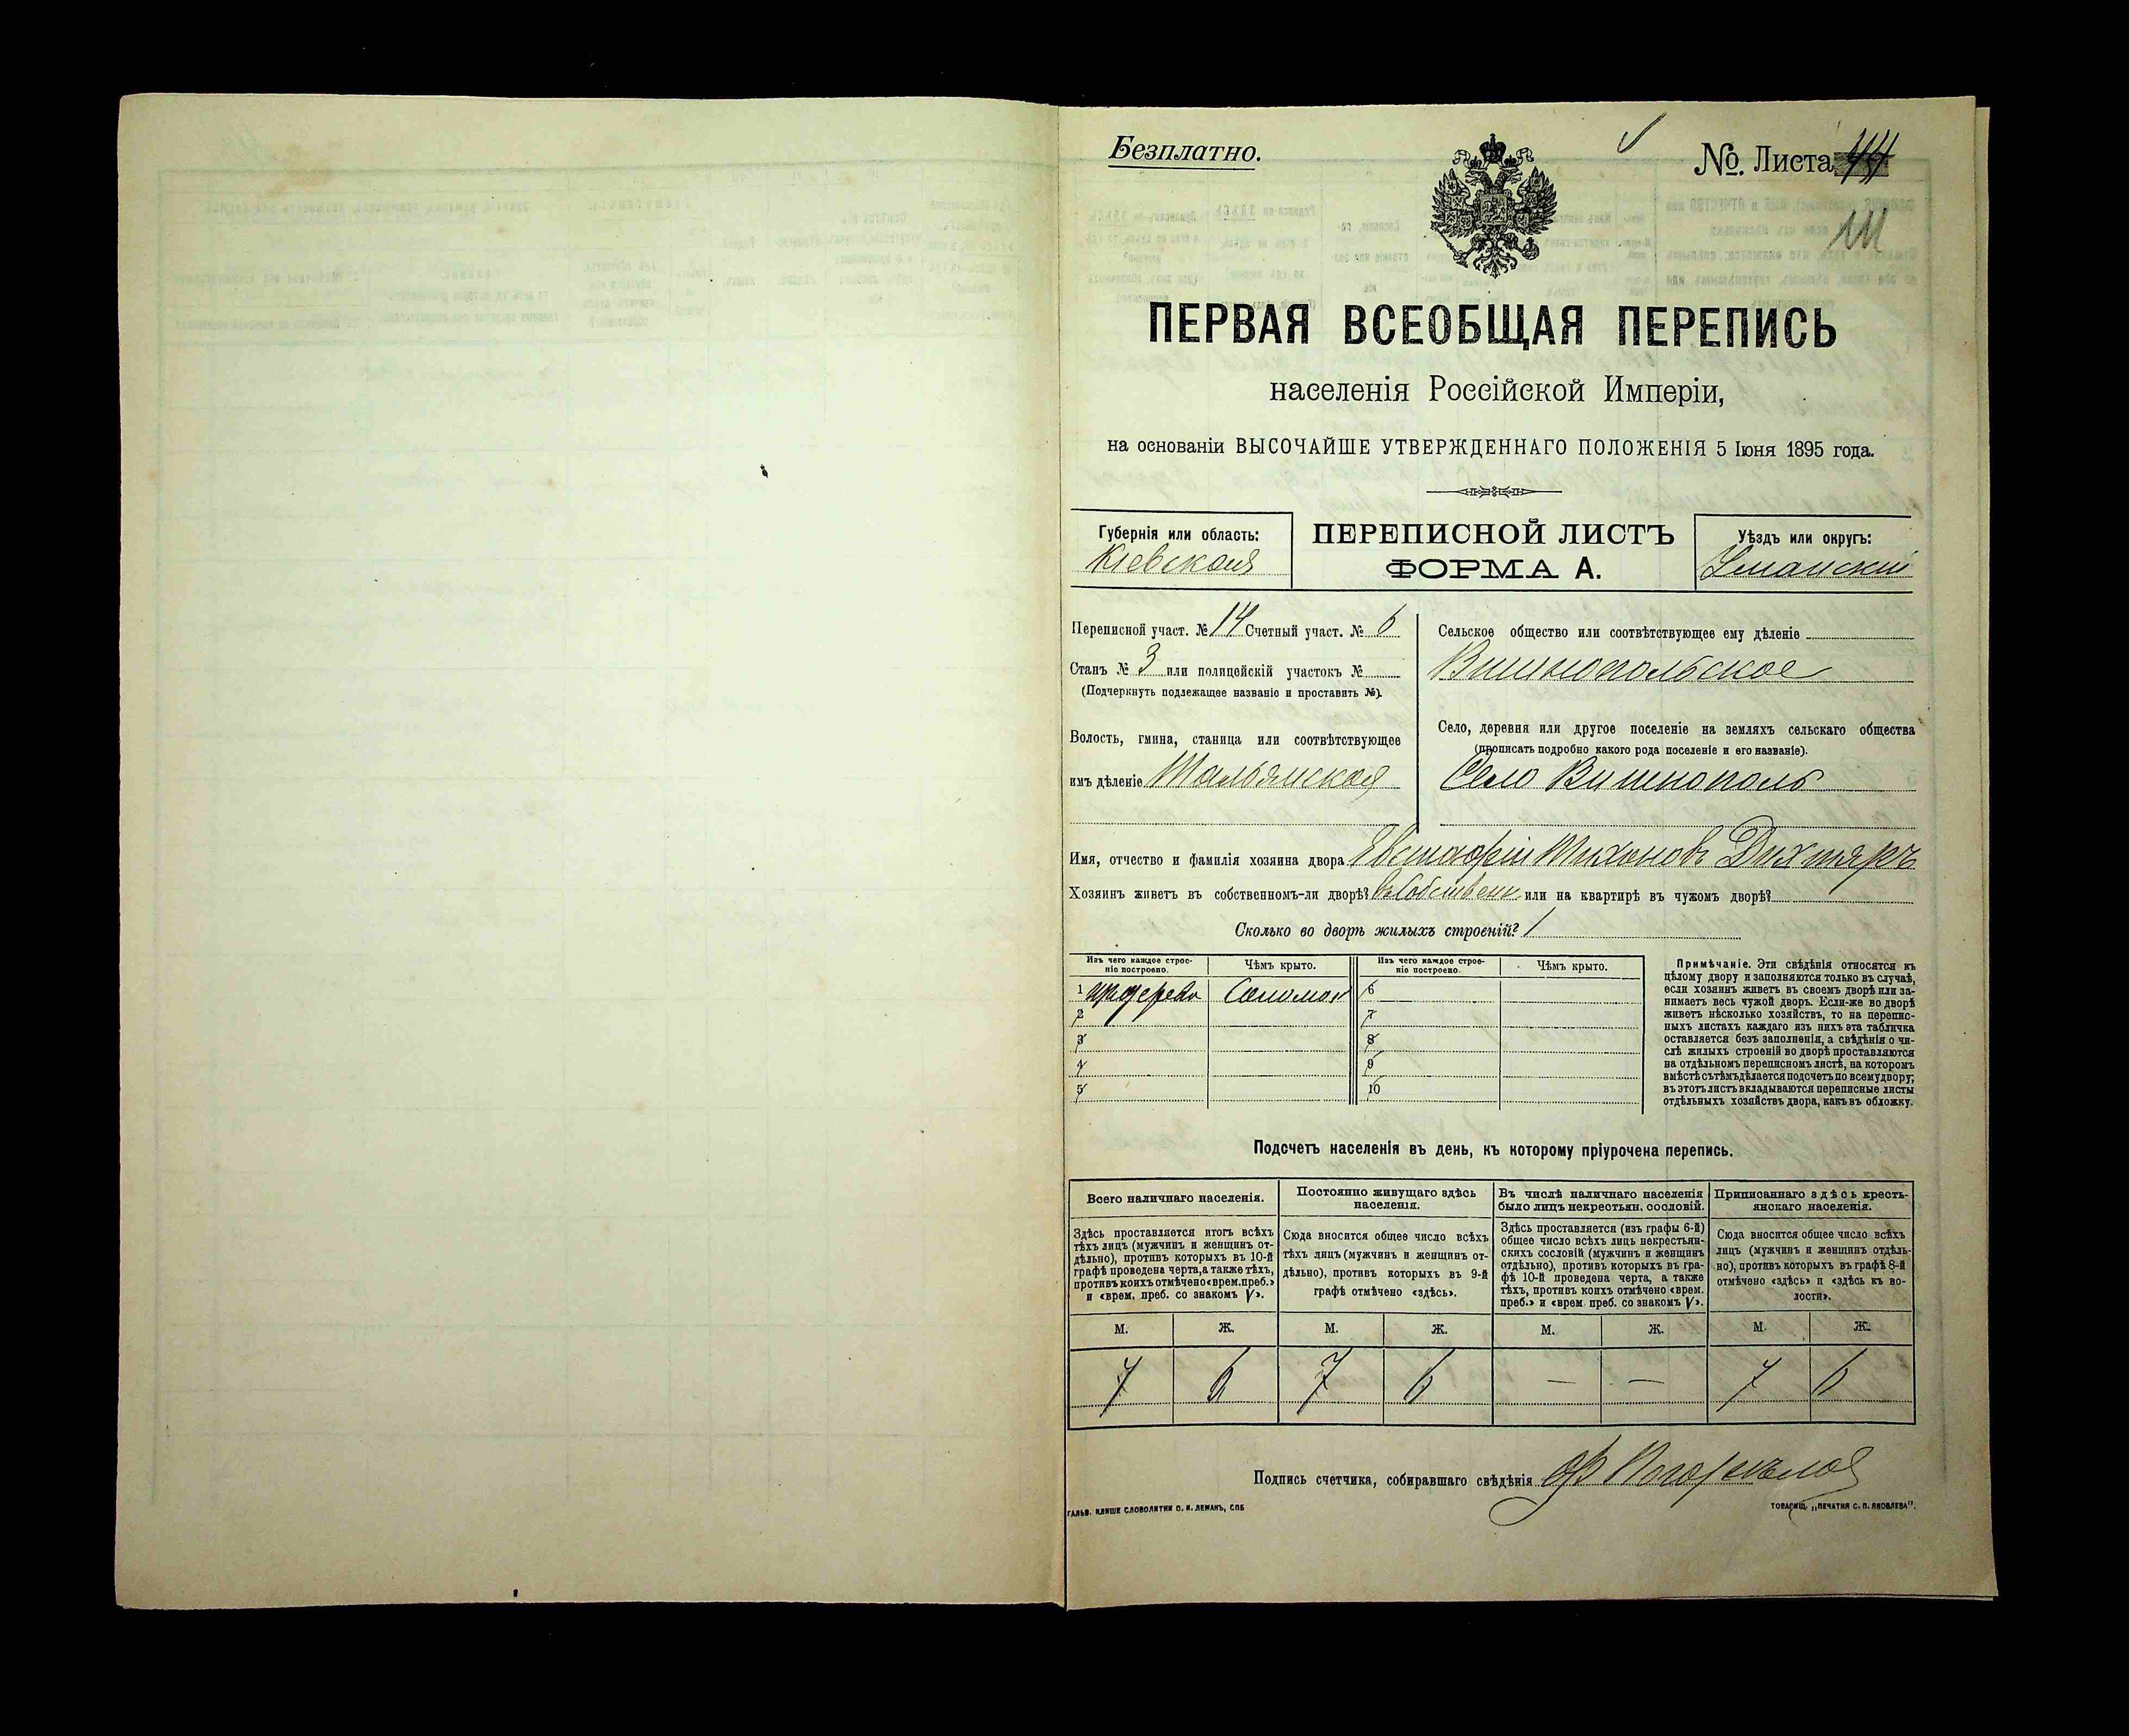 Безплатно.
№. Листа 44
111
ПЕРВАЯ ВСЕОБЩАЯ ПЕРЕПИСЬ
населенія Россійской Имперіи,
на основаніи ВЫСОЧАЙШЕ УТВЕРЖДЕННАГО ПОЛОЖЕНІЯ 5 Іюня 1895 года.
Губернія или область:
Кіевская
ПЕРЕПИСНОЙ ЛИСТЪ
ФОРМА А.
Уѣздъ или округъ:
Уманскій
Переписной участ. № 14 Счетный участ. № 6
Станъ № 3 или полицейскій участокъ №
(Подчеркнуть подлежащее названіе и проставить №).
Волость, гмина, станица или соотвѣтствующее
имъ дѣленіе Тальянская
Сельское общество или соотвѣтствующее ему дѣленіе
Вишнопольское
Село, деревня или другое поселеніе на земляхъ сельскаго общества
(прописать подробно какого рода поселеніе и его названіе).
Село Вишнополь
Имя, отчество и фамилія хозяина двора Евстафій Тихонов Дихтяръ
Хозяинъ живетъ въ собственномъ-ли дворѣ? въ собственн или на квартирѣ въ чужомъ дворѣ?
Сколько во дворѣ жилыхъ строеній? 1
Изъ чего каждое строе-
ніе построено.
Чѣмъ крыто.
Изъ чего каждое строе-
ніе построено.
Чѣмъ крыто.
1 дерева Соломой 6
2 7
3 8
4 9
5 10
Примѣчаніе. Эти свѣдѣнія относятся къ
цѣлому двору и заполняются только въ случаѣ,
если хозяинъ живетъ въ своемъ дворѣ или за-
нимаетъ весь чужой дворъ. Если-же во дворѣ
живетъ нѣсколько хозяйствъ, то на перепис-
ныхъ листахъ каждаго изъ нихъ эта табличка
оставляется безъ заполненія, а свѣдѣнія о чи-
слѣ жилыхъ строеній во дворѣ проставляются
на отдѣльномъ переписномъ листѣ, на которомъ
вмѣстѣ съ тѣмъ дѣлается подсчетъ по всему двору;
въ этотъ листъ вкладываются переписные листы
отдѣльныхъ хозяйствъ двора, какъ въ обложку.
Подсчетъ населенія въ день, къ которому пріурочена перепись.
Всего наличнаго населенія.
Здѣсь проставляется итогъ всѣхъ
тѣхъ лицъ (мужчинъ и женщинъ от-
дѣльно), противъ которыхъ въ 10-й
графѣ проведена черта, а также тѣхъ,
противъ коихъ отмѣчено «врем. преб.»
и «врем. преб. со знакомъ V».
Постоянно живущаго здѣсь
населенія.
Сюда вносится общее число всѣхъ
тѣхъ лицъ (мужчинъ и женщинъ от-
дѣльно), противъ которыхъ въ 9-й
графѣ отмѣчено «здѣсь».
Въ числѣ наличнаго населенія
было лицъ некрестьян. сословій.
Здѣсь проставляется (изъ графы 6-й)
общее число всѣхъ лицъ некрестьян-
скихъ сословій (мужчинъ и женщинъ
отдѣльно), противъ которыхъ въ гра-
фѣ 10-й проведена черта, а также
тѣхъ, противъ коихъ отмѣчено «врем.
преб.» и «врем преб. со знакомъ V».
Приписаннаго здѣсь кресть-
янскаго населенія.
Сюда вносится общее число всѣхъ
лицъ (мужчинъ и женщинъ отдѣль-
но), противъ которыхъ въ графѣ 8-й
отмѣчено «здѣсь» и «здѣсь къ во-
лости».
М. Ж. М. Ж. М. Ж. М. Ж.
7 6 7 6 — — 7 6
Подпись счетчика, собиравшаго свѣдѣнія
ГАЛЬВ. КЛИШЕ СЛОВОЛИТНИ О. И. ЛЕМАНЪ, СПБ
ТОВАРИЩ. „ПЕЧАТНЯ С. П. ЯКОВЛЕВА".